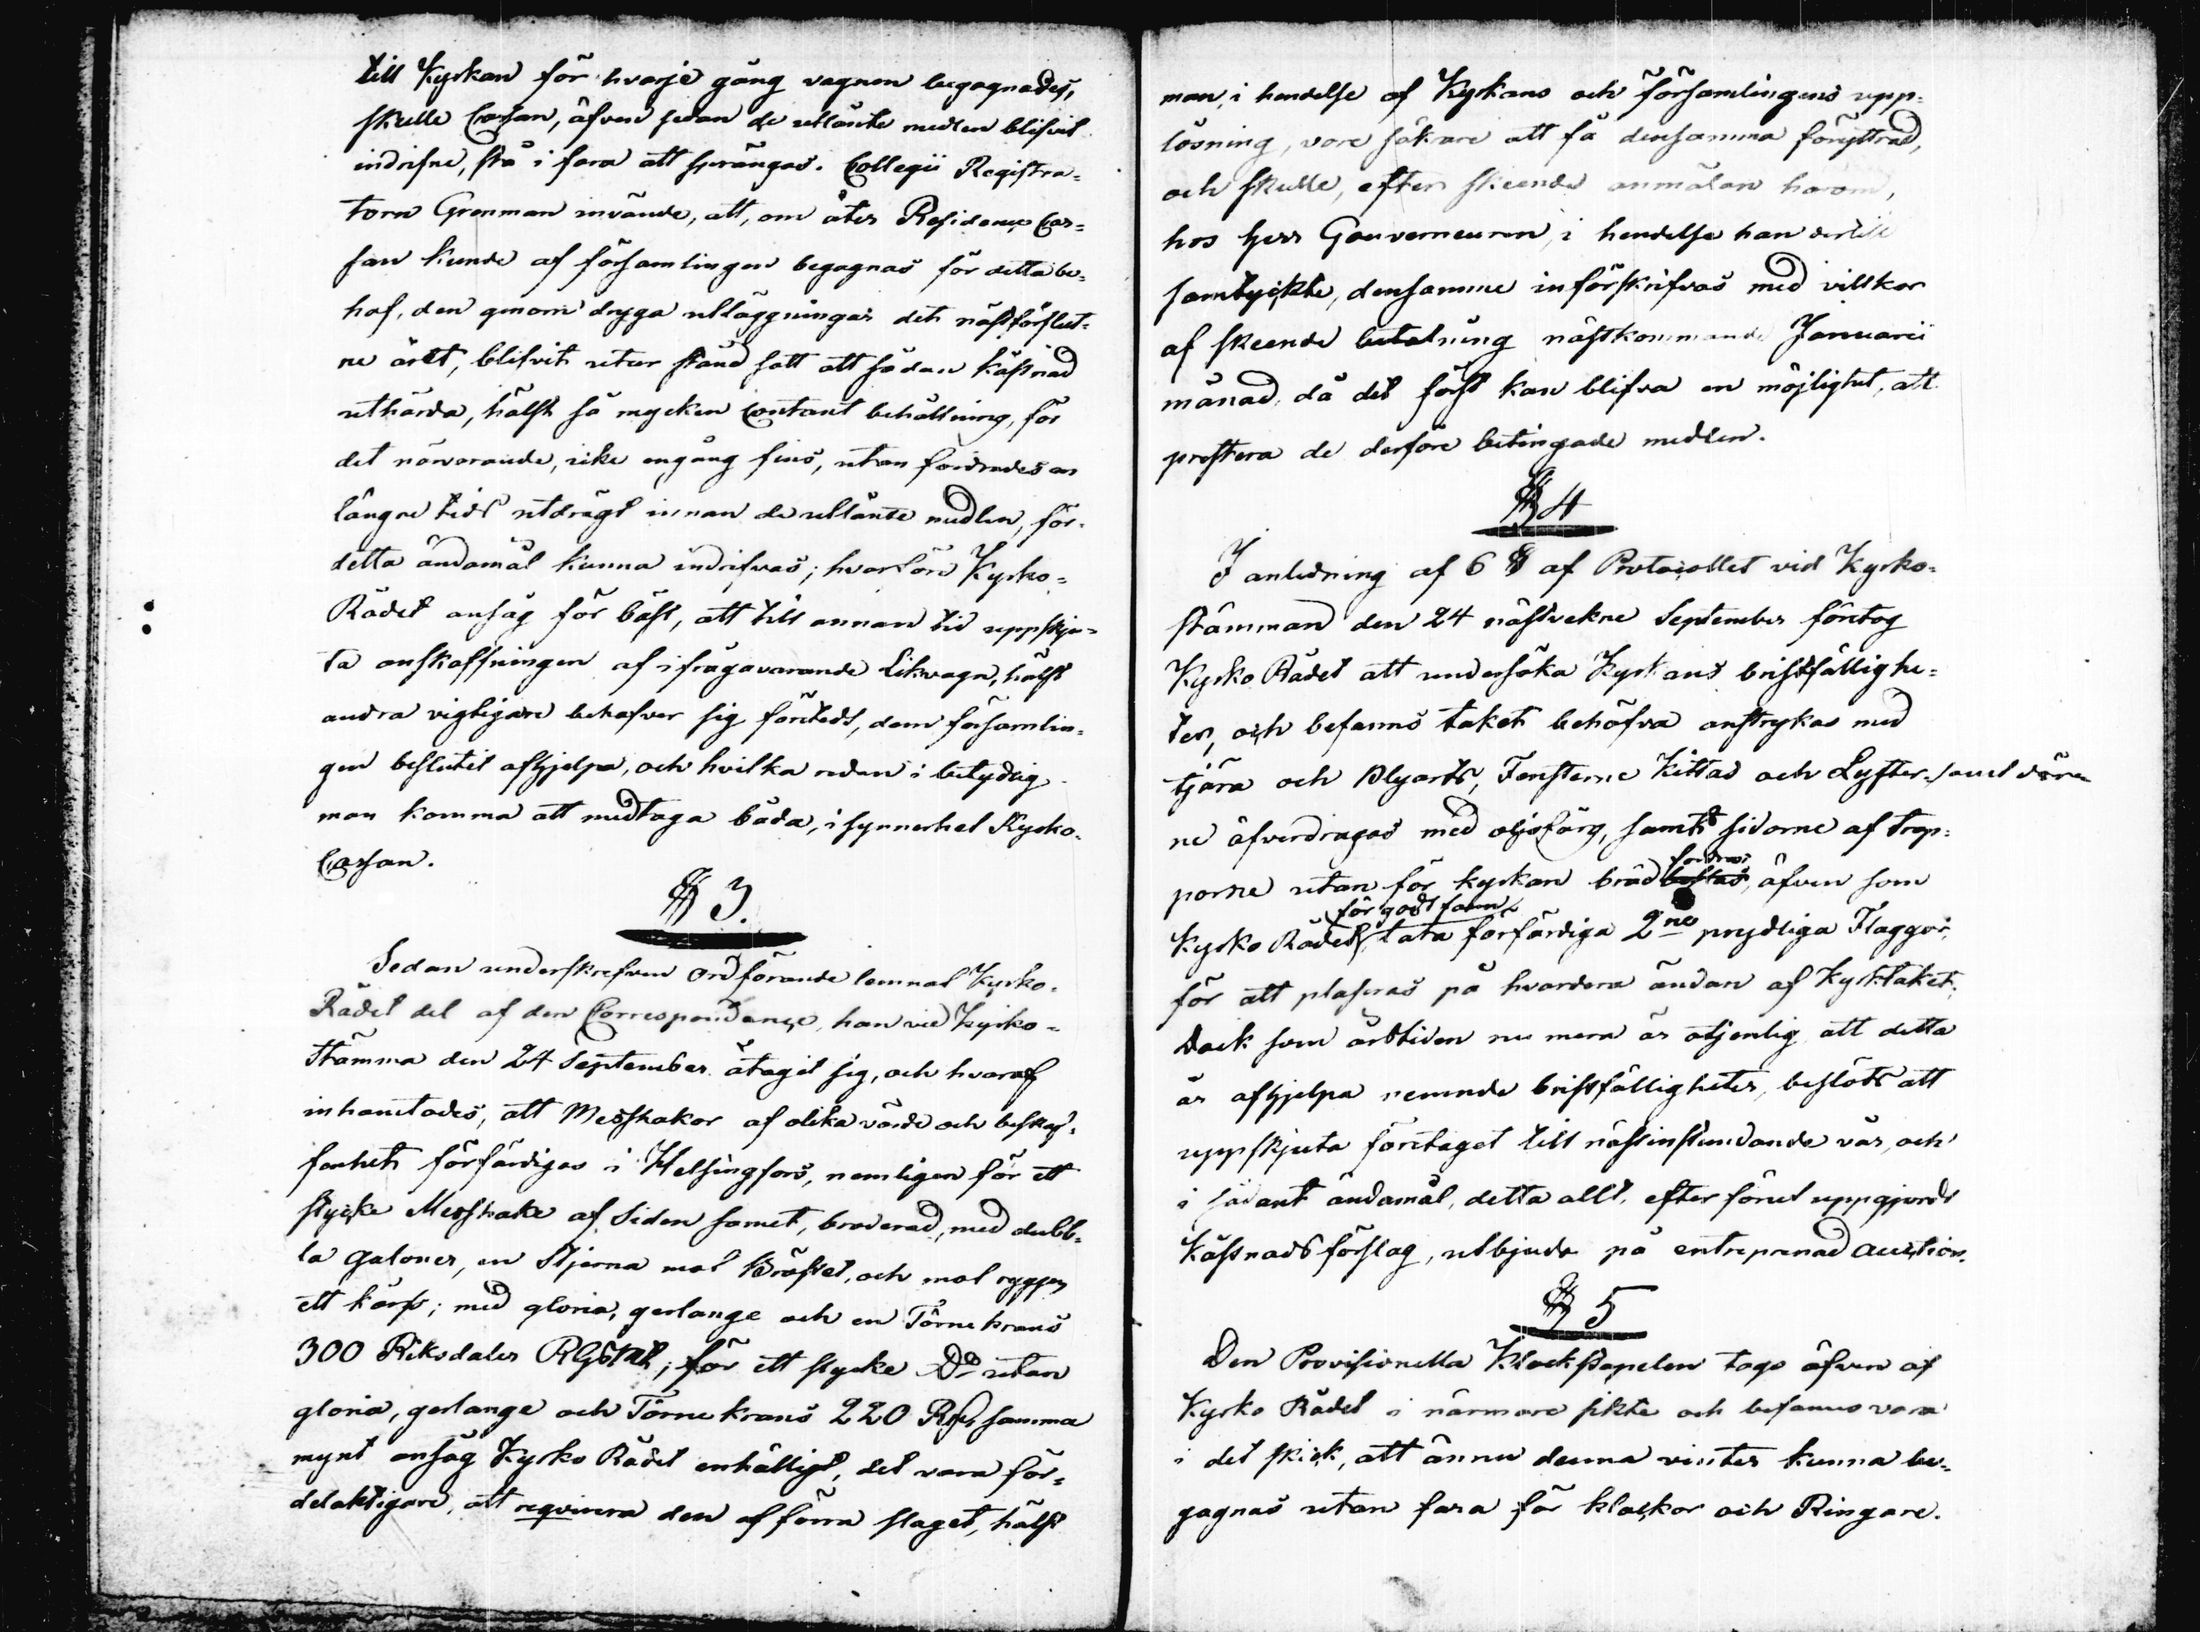 till Kyrkan för hvarje gång vagnen begagnades,
skulle Cassan, äfven sedan de utlånte medlen blifvit
indrifne, stå i fara att sprängas. Collegii Registra=
torn Grenman invände, att, om åter Residence Cas=
san kunde af församlingen begagnas för detta be=
hof, den genom dryga utläggningar det nästförflut=
ne året, blifvit utur stånd satt att sådan kåstnad
uthärda, hälst så mycken Contant behållning, för
det närvarande, icke engång fins, utan fordrades en
längre tids utdrägt innan de utlånte medlen, för
detta ändamål kunna indrifvas; hvarföre Kyrko=
Rådet ansåg för bäst, att till annan tid uppskju=
ta anskaffningen af ifrågavarande Likvagn, hälst
andra vigtigare behofver sig företedt, dem församlin=
gen beslutit afhjelpa, och hvilka redan i betydlig
mon komma att medtaga båda, i synnerhet Kyrko=
Cassan.
§ 3.
Sedan underskrefven Ordförande lemnat Kyrko=
Rådet del af den Correspondance, han vid Kyrko=
Stämma den 24 September åtagit sig, och hvaraf
inhämtades, att Messhakor af olika värde och beskaf=
fenhet förfärdigas i Helsingfors, nemligen för ett
stycke Messhake af Siden samet, broderad, med dubb=
la galoner, en Stjerna mot Bröstet, och mot ryggen
ett kors; med gloria, gerlange och en Törne krans
300 Riksdaler RGstAl; för ett stycke Do utan
gloria, gerlange och Törne krans 220 Rdr samma
mynt ansåg Kyrko Rådet enhälligt, det vara för=
delaktigare, att reqvirera den af förra slaget, hälst
man, i hendelse af Kyrkans och församlingens upp=
lösning, vore säkrare att få densamma föryttrad,
och skulle, efter skeende anmälan härom,
hos Herr Gouverneuren, i hendelse han dertill
samtyckte, densamme införskrifvas med villkor
af skeende betalning nästkommande Januarii
månad, då det först kan blifva en möjlighet, att
prestera de derföre betingade medlen.
§ 4
I anledning af 6 § af Protocollet vid Kyrko=
stämman den 24 nästvekne September företog
Kyrko Rådet att undersöka Kyrkans bristfällighe=
ter, och befanns taket behöfva anstrykas med
tjära och Blyerts, Fensterne kittas och Lyster samt dörar
ne öfverdragas med oljefärg, samt sidorne af trap=
porne utan för kyrkan bräd fordras äfven som
Kyrko Rådet för godt fann låta förfärdiga 2ne prydliga Flaggor,
för att placeras på hvardera ändan af Kyrktaket;
Dock som årstiden nu mera är otjenlig att detta
år afhjelpa nemnde bristfälligheter, beslöts att
uppskjuta företaget till nästinstundande vår, och
i sådant ändamål, detta allt, efter förut uppgjordt
Kåstnads förslag, utbjuda på entreprenad auction.
§ 5
Den Provisionella Klockstapelen togs äfven af
Kyrko Rådet i närmare sikte och befanns vara
i det skick, att ännu denna vinter kunna be=
gagnas utan fara för klockor och Ringare.